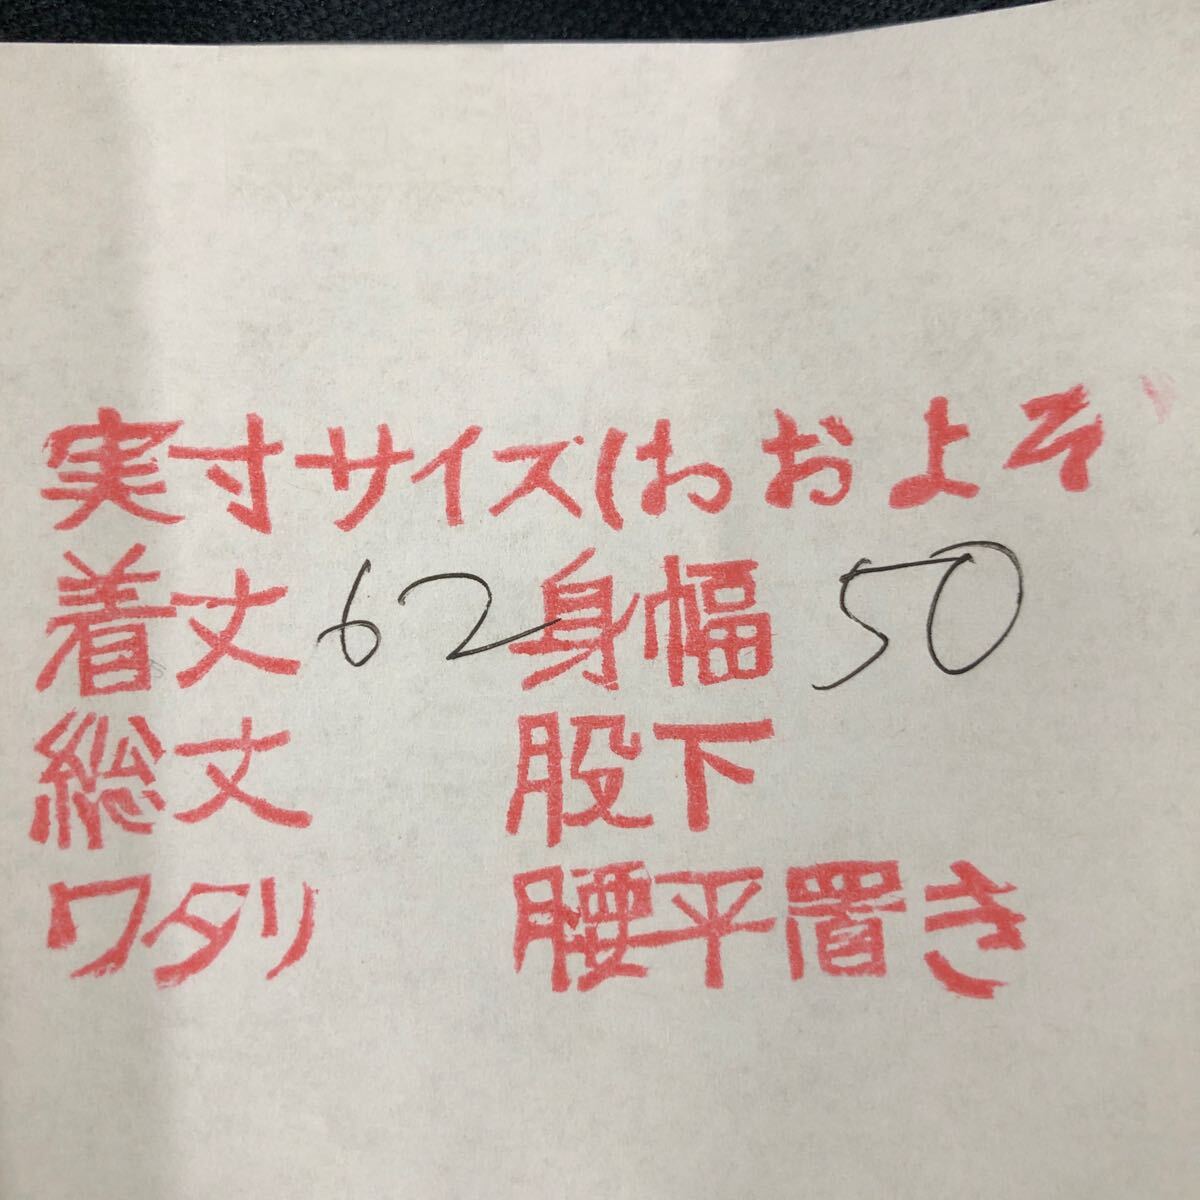 実寸サイズ(おおよそ
着丈 62 身幅 50
総丈 股下
ワタリ 腰平置き